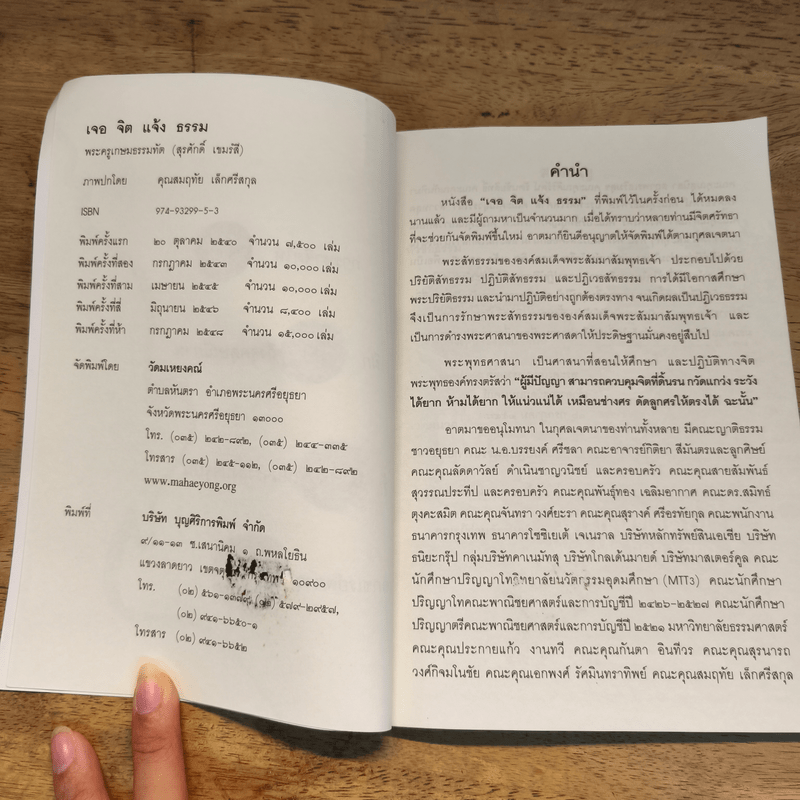 เจอ จิต แจ้ง ธรรม
พระครูเกษมธรรมทัต (สุรศักดิ์ เขมรังสี)
ภาพปกโดย คุณสมฤทัย เล็กศรีสกุล
ISBN 974-93299-5-3
พิมพ์ครั้งแรก ๒๐ ตุลาคม ๒๕๔๐ จำนวน ๗,๕๐๐ เล่ม
พิมพ์ครั้งที่สอง กรกฎาคม ๒๕๔๓ จำนวน ๑๐,๐๐๐ เล่ม
พิมพ์ครั้งที่สาม เมษายน ๒๕๔๕ จำนวน ๑๐,๐๐๐ เล่ม
พิมพ์ครั้งที่สี่ มิถุนายน ๒๕๔๖ จำนวน ๘,๔๐๐ เล่ม
พิมพ์ครั้งที่ห้า กรกฎาคม ๒๕๔๘ จำนวน ๑๕,๐๐๐ เล่ม
จัดพิมพ์โดย วัดมเหยงคณ์
ตำบลหันตรา อำเภอพระนครศรีอยุธยา
จังหวัดพระนครศรีอยุธยา ๑๓๐๐๐
โทร. (๐๓๕) ๒๔๒-๘๙๒, (๐๓๕) ๒๔๔-๓๓๕
โทรสาร (๐๓๕) ๒๔๕-๑๑๒, (๐๓๕) ๒๔๒-๘๙๒
www.mahaeyong.org
พิมพ์ที่ บริษัท บุญศิริการพิมพ์ จำกัด
๙/๑๑-๑๓ ซ.เสนานิคม ๑ ถ.พหลโยธิน
แขวงลาดยาว เขตจตุ ๑๐๙๐๐
โทร. (๐๒) ๕๖๑-๑๓๗๙, (๐๒) ๕๗๙-๒๙๕๗,
(๐๒) ๙๔๑-๖๖๕๐-๑
โทรสาร (๐๒) ๙๔๑-๖๖๕๒
คำนำ
หนังสือ “เจอ จิต แจ้ง ธรรม” ที่พิมพ์ไว้ในครั้งก่อน ได้หมดลง
นานแล้ว และมีผู้ถามหาเป็นจำนวนมาก เมื่อได้ทราบว่าหลายท่านมีจิตศรัทธา
ที่จะช่วยกันจัดพิมพ์ขึ้นใหม่ อาตมาก็ยินดีอนุญาตให้จัดพิมพ์ได้ตามกุศลเจตนา
พระสัทธรรมขององค์สมเด็จพระสัมมาสัมพุทธเจ้า ประกอบไปด้วย
ปริยัติสัทธรรม ปฏิบัติสัทธรรม และปฏิเวธสัทธรรม การได้มีโอกาสศึกษา
พระปริยัติธรรม และนำมาปฏิบัติอย่างถูกต้องตรงทาง จนเกิดผลเป็นปฏิเวธธรรม
จึงเป็นการรักษาพระสัทธรรมขององค์สมเด็จพระสัมมาสัมพุทธเจ้า และ
เป็นการดำรงพระศาสนาของพระศาสดาให้ประดิษฐานมั่นคงอยู่สืบไป
พระพุทธศาสนา เป็นศาสนาที่สอนให้ศึกษา และปฏิบัติทางจิต
พระพุทธองค์ทรงตรัสว่า “ผู้มีปัญญา สามารถควบคุมจิตที่ดิ้นรน กวัดแกว่ง ระวัง
ได้ยาก ห้ามได้ยาก ให้แน่วแน่ได้ เหมือนช่างศร ดัดลูกศรให้ตรงได้ ฉะนั้น”
อาตมาขออนุโมทนา ในกุศลเจตนาของท่านทั้งหลาย มีคณะญาติธรรม
ชาวอยุธยา คณะ น.อ.บรรยงค์ ศรีชลา คณะอาจารย์กิติยา สีมันตรและลูกศิษย์
คณะคุณลัดดาวัลย์ ดำเนินชาญวนิชย์ และครอบครัว คณะคุณสายสัมพันธ์
สุวรรณประทีป และครอบครัว คณะคุณพันธุ์ทอง เฉลิมอากาศ คณะดร.สมิทธ์
ตุงคะสมิต คณะคุณจันทรา วงศ์ยะรา คณะคุณสุรางค์ ศรีอรทัยกุล คณะพนักงาน
ธนาคารกรุงเทพ ธนาคารโซซิเยเต้ เจเนราล บริษัทหลักทรัพย์สินเอเซีย บริษัท
ธนิยะกรุ๊ป กลุ่มบริษัทคาเนมัทสุ บริษัทโกลเด้นมายด์ บริษัทมาสเตอร์คูล คณะ
นักศึกษาปริญญาโทวิทยาลัยนวัตกรรมอุดมศึกษา (MTT3) คณะนักศึกษา
ปริญญาโทคณะพาณิชยศาสตร์และการบัญชีปี ๒๕๒๖-๒๕๒๗ คณะนักศึกษา
ปริญญาตรีคณะพาณิชยศาสตร์และการบัญชีปี ๒๕๒๑ มหาวิทยาลัยธรรมศาสตร์
คณะคุณประกายแก้ว งานทวี คณะคุณกันตา อินทีวร คณะคุณสุรนารถ
วงศ์กิจมโนชัย คณะคุณเอกพงศ์ รัศมินทราทิพย์ คณะคุณสมฤทัย เล็กศรีสกุล